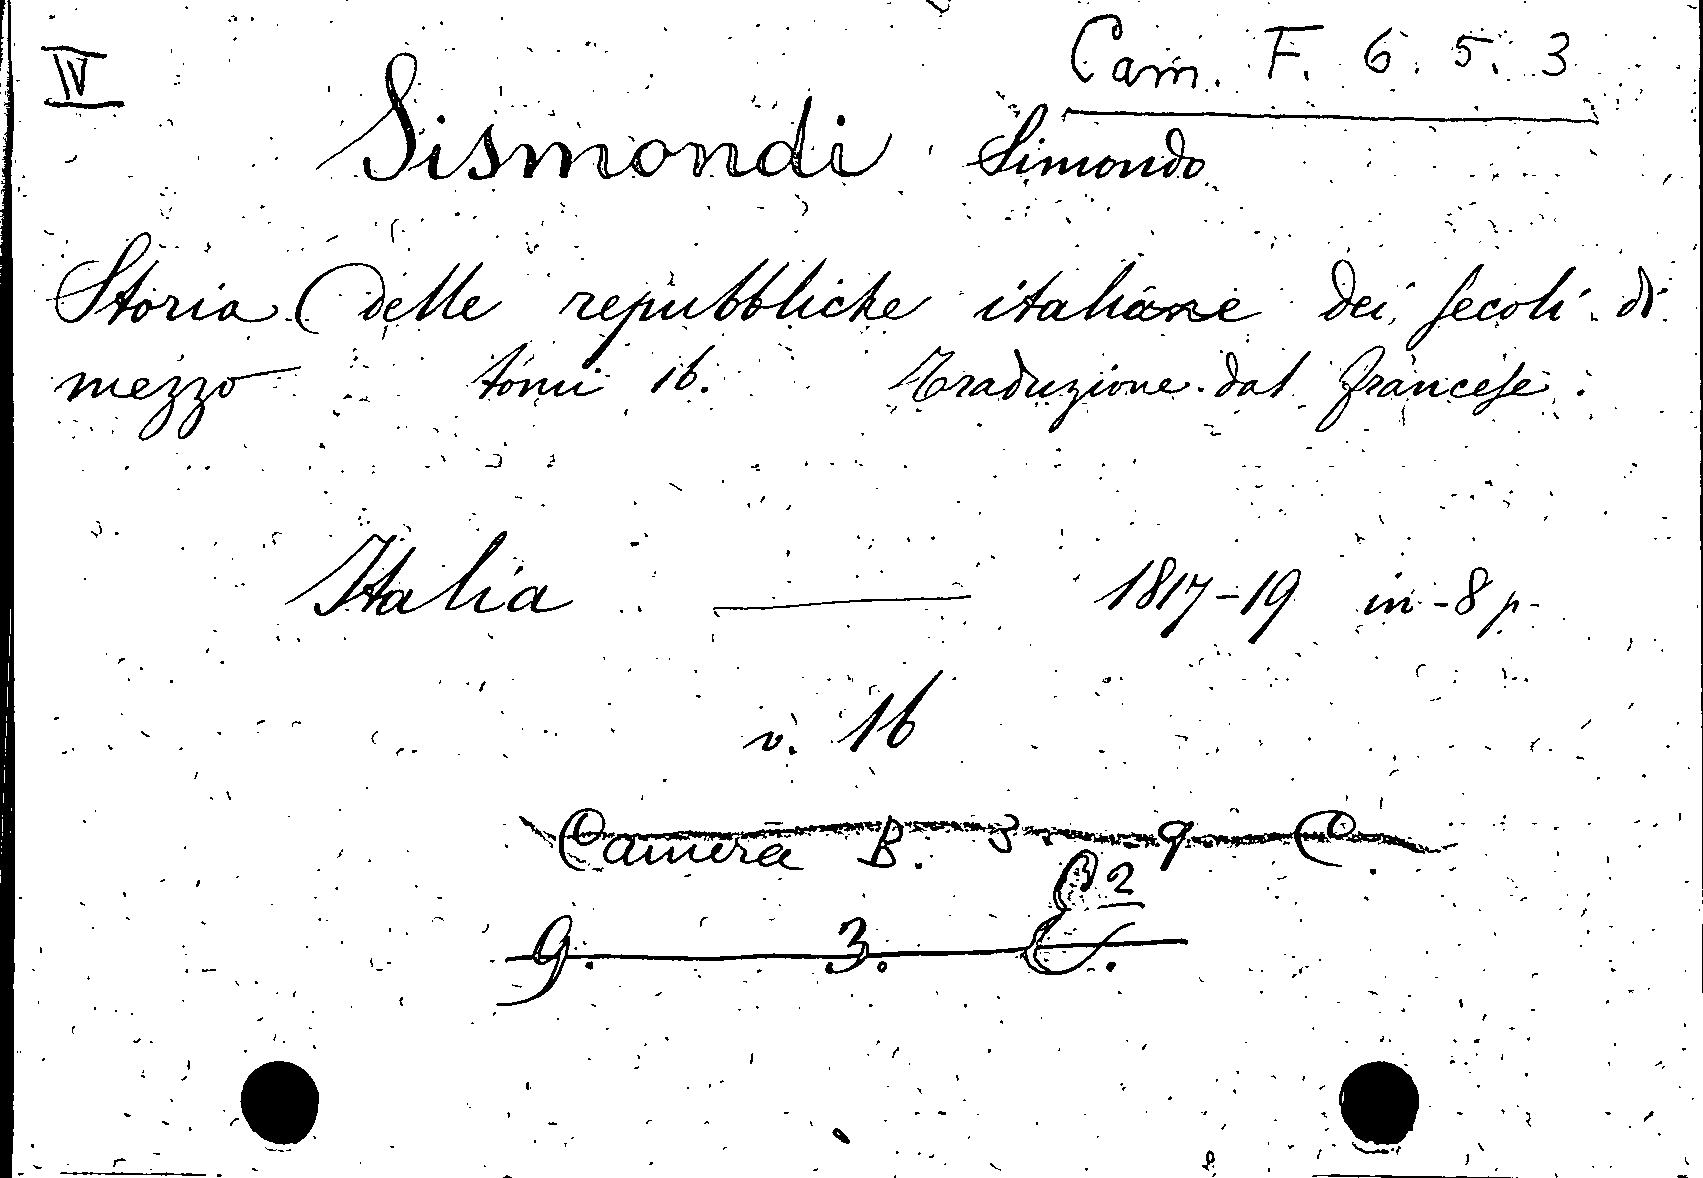 IV
Cam. F. 6. 5. 3
Sismondi Simondo
Storia delle repubbliche italiane dei secoli di
mezzo tomi 16. Traduzione dal francese.
Italia — 1817-19 in-8 p.
v. 16
Camera B. 3. 9 C.
2
9. 3.